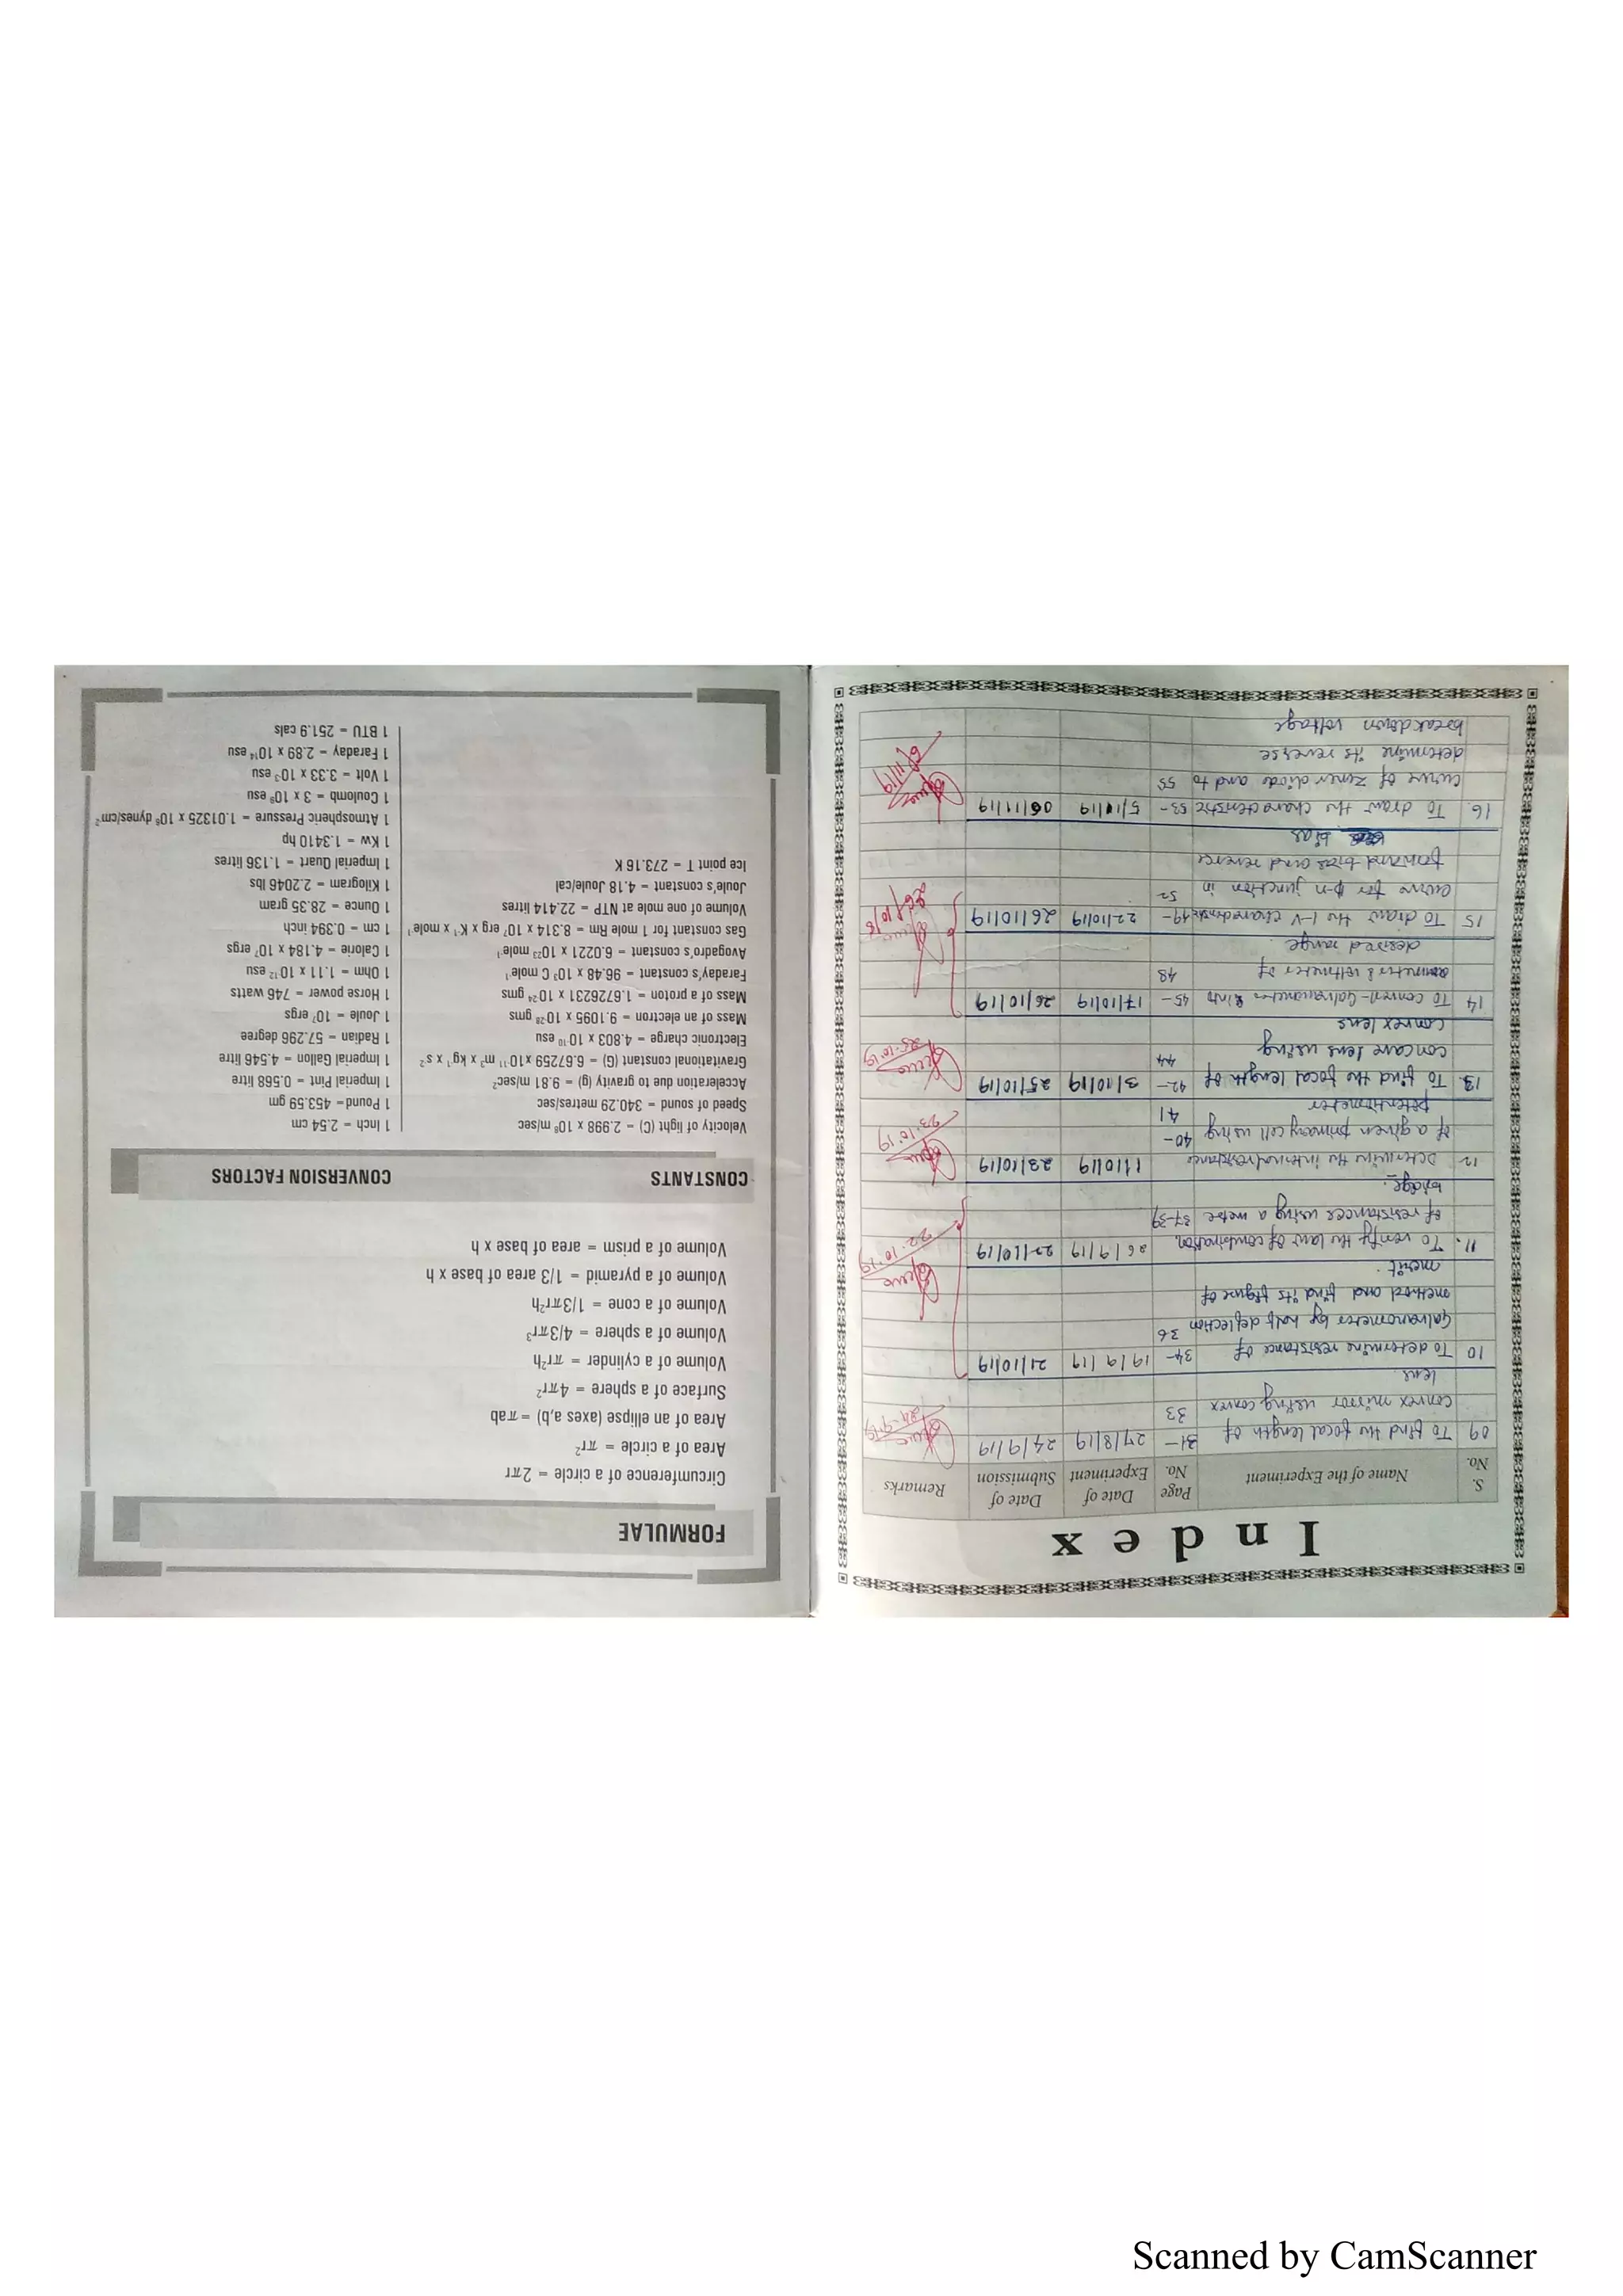 Index
S. No.
Name of the Experiment
Page No.
Date of Experiment
Date of Submission
Remarks
09 To find the focal length of 31- 27/8/19 24/9/19
convex mirror using convex 33
lens
24.9.19
10 To determine resistance of 34- 19/9/19 21/10/19
Galvanometer by half deflection 36
method and find its figure of
merit.
11. To verify the law of combination 26/9/19 22/10/19
of resistances using a metre 37-39
bridge.
22.10.19
12. Determine the internal resistance 1/10/19 23/10/19
of a given primary cell using 40-
potentiometer 41
23.10.19
13. To find the focal length of 42- 3/10/19 25/10/19
concave lens using 44
convex lens
25.10.19
14 To convert Galvanometer into 45- 17/10/19 26/10/19
ammeter & voltmeter of 48
desired range
15 To draw the I-V characteristic 49- 22/10/19 26/10/19
curve for p-n junction in 52
forward bias and reverse
bias
16. To draw the characteristic 53- 5/11/19 06/11/19
curve of Zener diode and to 55
determine its reverse
breakdown voltage
6/11/19
FORMULAE
Circumference of a circle = 2πr
Area of a circle = πr²
Area of an ellipse (axes a,b) = πab
Surface of a sphere = 4πr²
Volume of a cylinder = πr²h
Volume of a sphere = 4/3πr³
Volume of a cone = 1/3πr²h
Volume of a pyramid = 1/3 area of base x h
Volume of a prism = area of base x h
CONSTANTS
Velocity of light (C) = 2.998 x 10⁸ m/sec
Speed of sound = 340.29 metres/sec
Acceleration due to gravity (g) = 9.81 m/sec²
Gravitational constant (G) = 6.67259 x10⁻¹¹ m³ x kg⁻¹ x s⁻²
Electronic charge = 4.803 x 10⁻¹⁰ esu
Mass of an electron = 9.1095 x 10⁻²⁸ gms
Mass of a proton = 1.6726231 x 10⁻²⁴ gms
Faraday's constant = 96.48 x 10³ C mole⁻¹
Avogadro's constant = 6.0221 x 10²³ mole⁻¹
Gas constant for 1 mole Rm = 8.314 x 10⁷ erg x K⁻¹ x mole⁻¹
Volume of one mole at NTP = 22.414 litres
Joule's constant = 4.18 Joule/cal
Ice point T = 273.16 K
CONVERSION FACTORS
1 Inch = 2.54 cm
1 Pound= 453.59 gm
1 Imperial Pint = 0.568 litre
1 Imperial Gallon = 4.546 litre
1 Radian = 57.296 degree
1 Joule = 10⁷ ergs
1 Horse power = 746 watts
1 Ohm = 1.11 x 10⁻¹² esu
1 Calorie = 4.184 x 10⁷ ergs
1 cm = 0.394 inch
1 Ounce = 28.35 gram
1 Kilogram = 2.2046 lbs
1 Imperial Quart = 1.136 litres
1 Kw = 1.3410 hp
1 Atmospheric Pressure = 1.01325 x 10⁶ dynes/cm⁻²
1 Coulomb = 3 x 10⁹ esu
1 Volt = 3.33 x 10⁻³ esu
1 Faraday = 2.89 x 10¹⁴ esu
1 BTU = 251.9 cals
Scanned by CamScanner